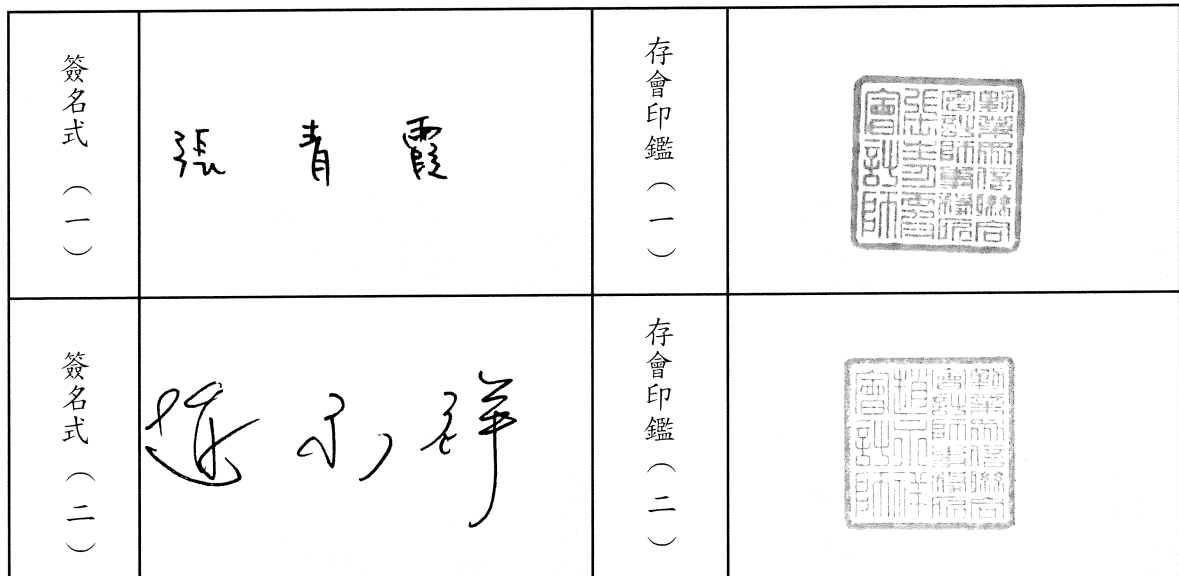 簽名式（一）
張青霞
存會印鑑（一）
勤業眾信聯合
會計師事務所
會計師
簽名式（二）
趙永祥
存會印鑑（二）
勤業眾信聯合
會計師事務所
趙永祥
會計師